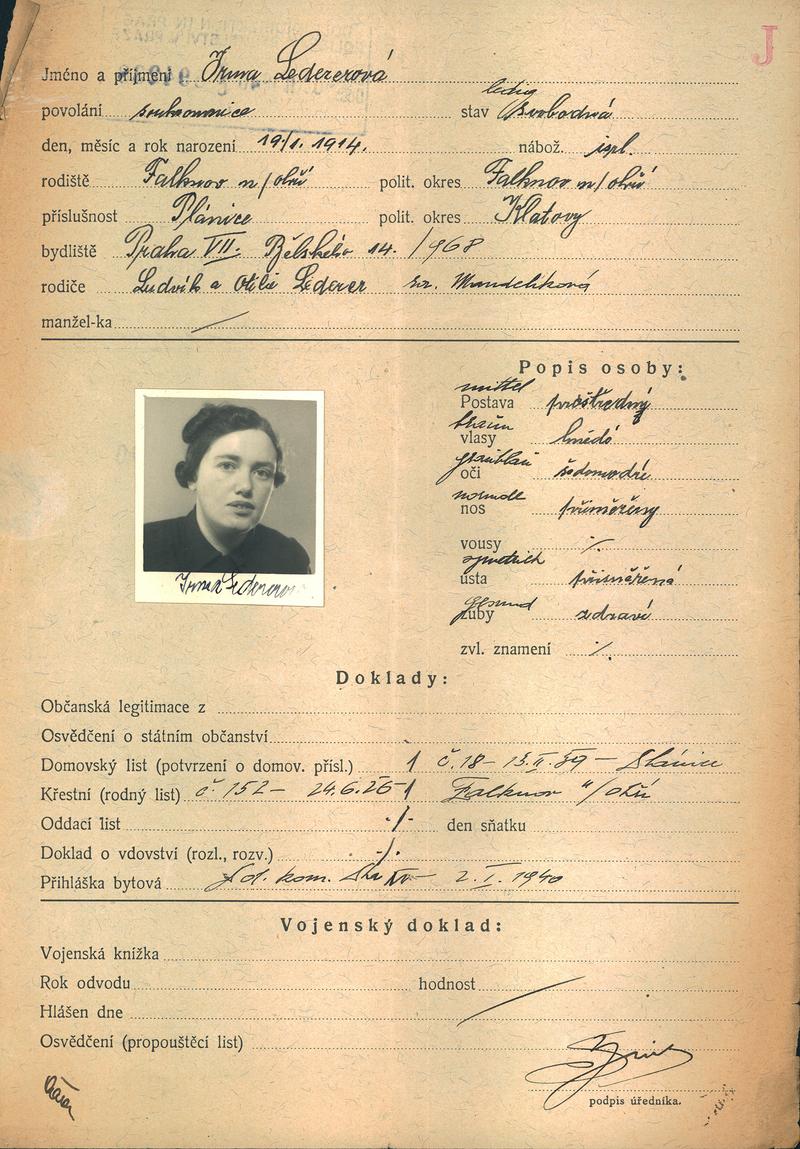 J
Jméno a příjmení Irma Ledererová
ledig
povolání soukromnice stav svobodná
den, měsíc a rok narození 19/1. 1914. nábož. izrl.
rodiště Falknov n/Ohří polit. okres Falknov n/Ohří
příslušnost Plánice polit. okres Klatovy
bydliště Praha VII. Bělského 14. /968
rodiče Ludvík a Otilie Lederer roz. Mandelíková
manžel-ka /
Popis osoby:
mittel
Postava prostřední
braun
vlasy hnědé
graublau
oči šedomodré
normale
nos přiměřený
vousy ./.
ústa přiměřená
gesund
zuby zdravé
zvl. znamení ./.
Irma Ledererova
Doklady:
Občanská legitimace z
Osvědčení o státním občanství
Domovský list (potvrzení o domov. přísl.) 1 č. 18 - 15.II.39 - Plánice
Křestní (rodný list) č. 152 - 24.6.26 1 Falknov n/Ohří
Oddací list -/- den sňatku
Doklad o vdovství (rozl., rozv.) -/-
Přihláška bytová 2. I. 1940
Vojenský doklad:
Vojenská knížka
Rok odvodu hodnost
Hlášen dne
Osvědčení (propouštěcí list)
podpis úředníka.